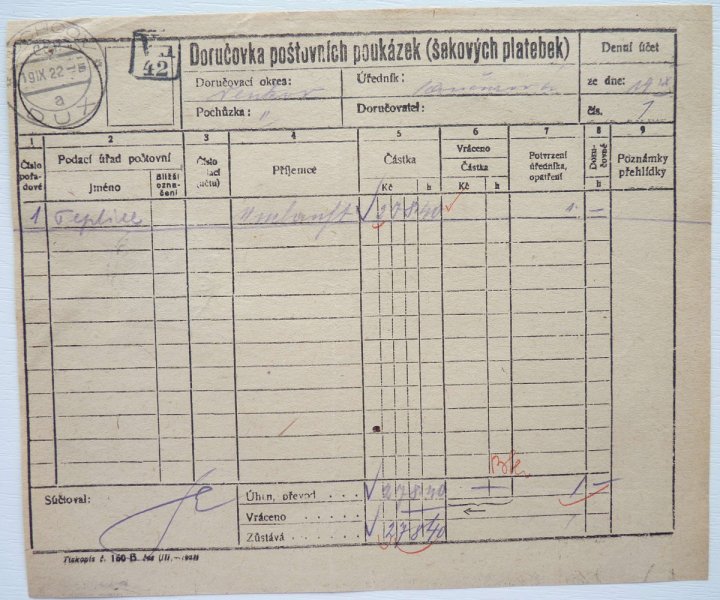 DUCHCOV
19.IX.22
a
DUX
VII
42
Doručovka poštovních poukázek (šekových platebek)
Denní účet
Doručovací okres:
Úředník:
ze dne: 19.IX
Pochůzka: II
Doručovatel:
čís. 1
1 2 3 4 5 6 7 8 9
Číslo pořadové
Podací úřad poštovní
Jméno
Bližší označení
Číslo
Příjemce
Částka
Kč h
Vráceno
Částka
Kč h
Potvrzení úředníka, opatření
Doručovné
h
Poznámky přehlídky
1 Teplice 278 40 1 —
Súčtoval:
Úhrn, převod . . . . 278 40 — 1 —
Vráceno . . . . —
Zůstává . . . . 278 40
Tiskopis č. 160-B.